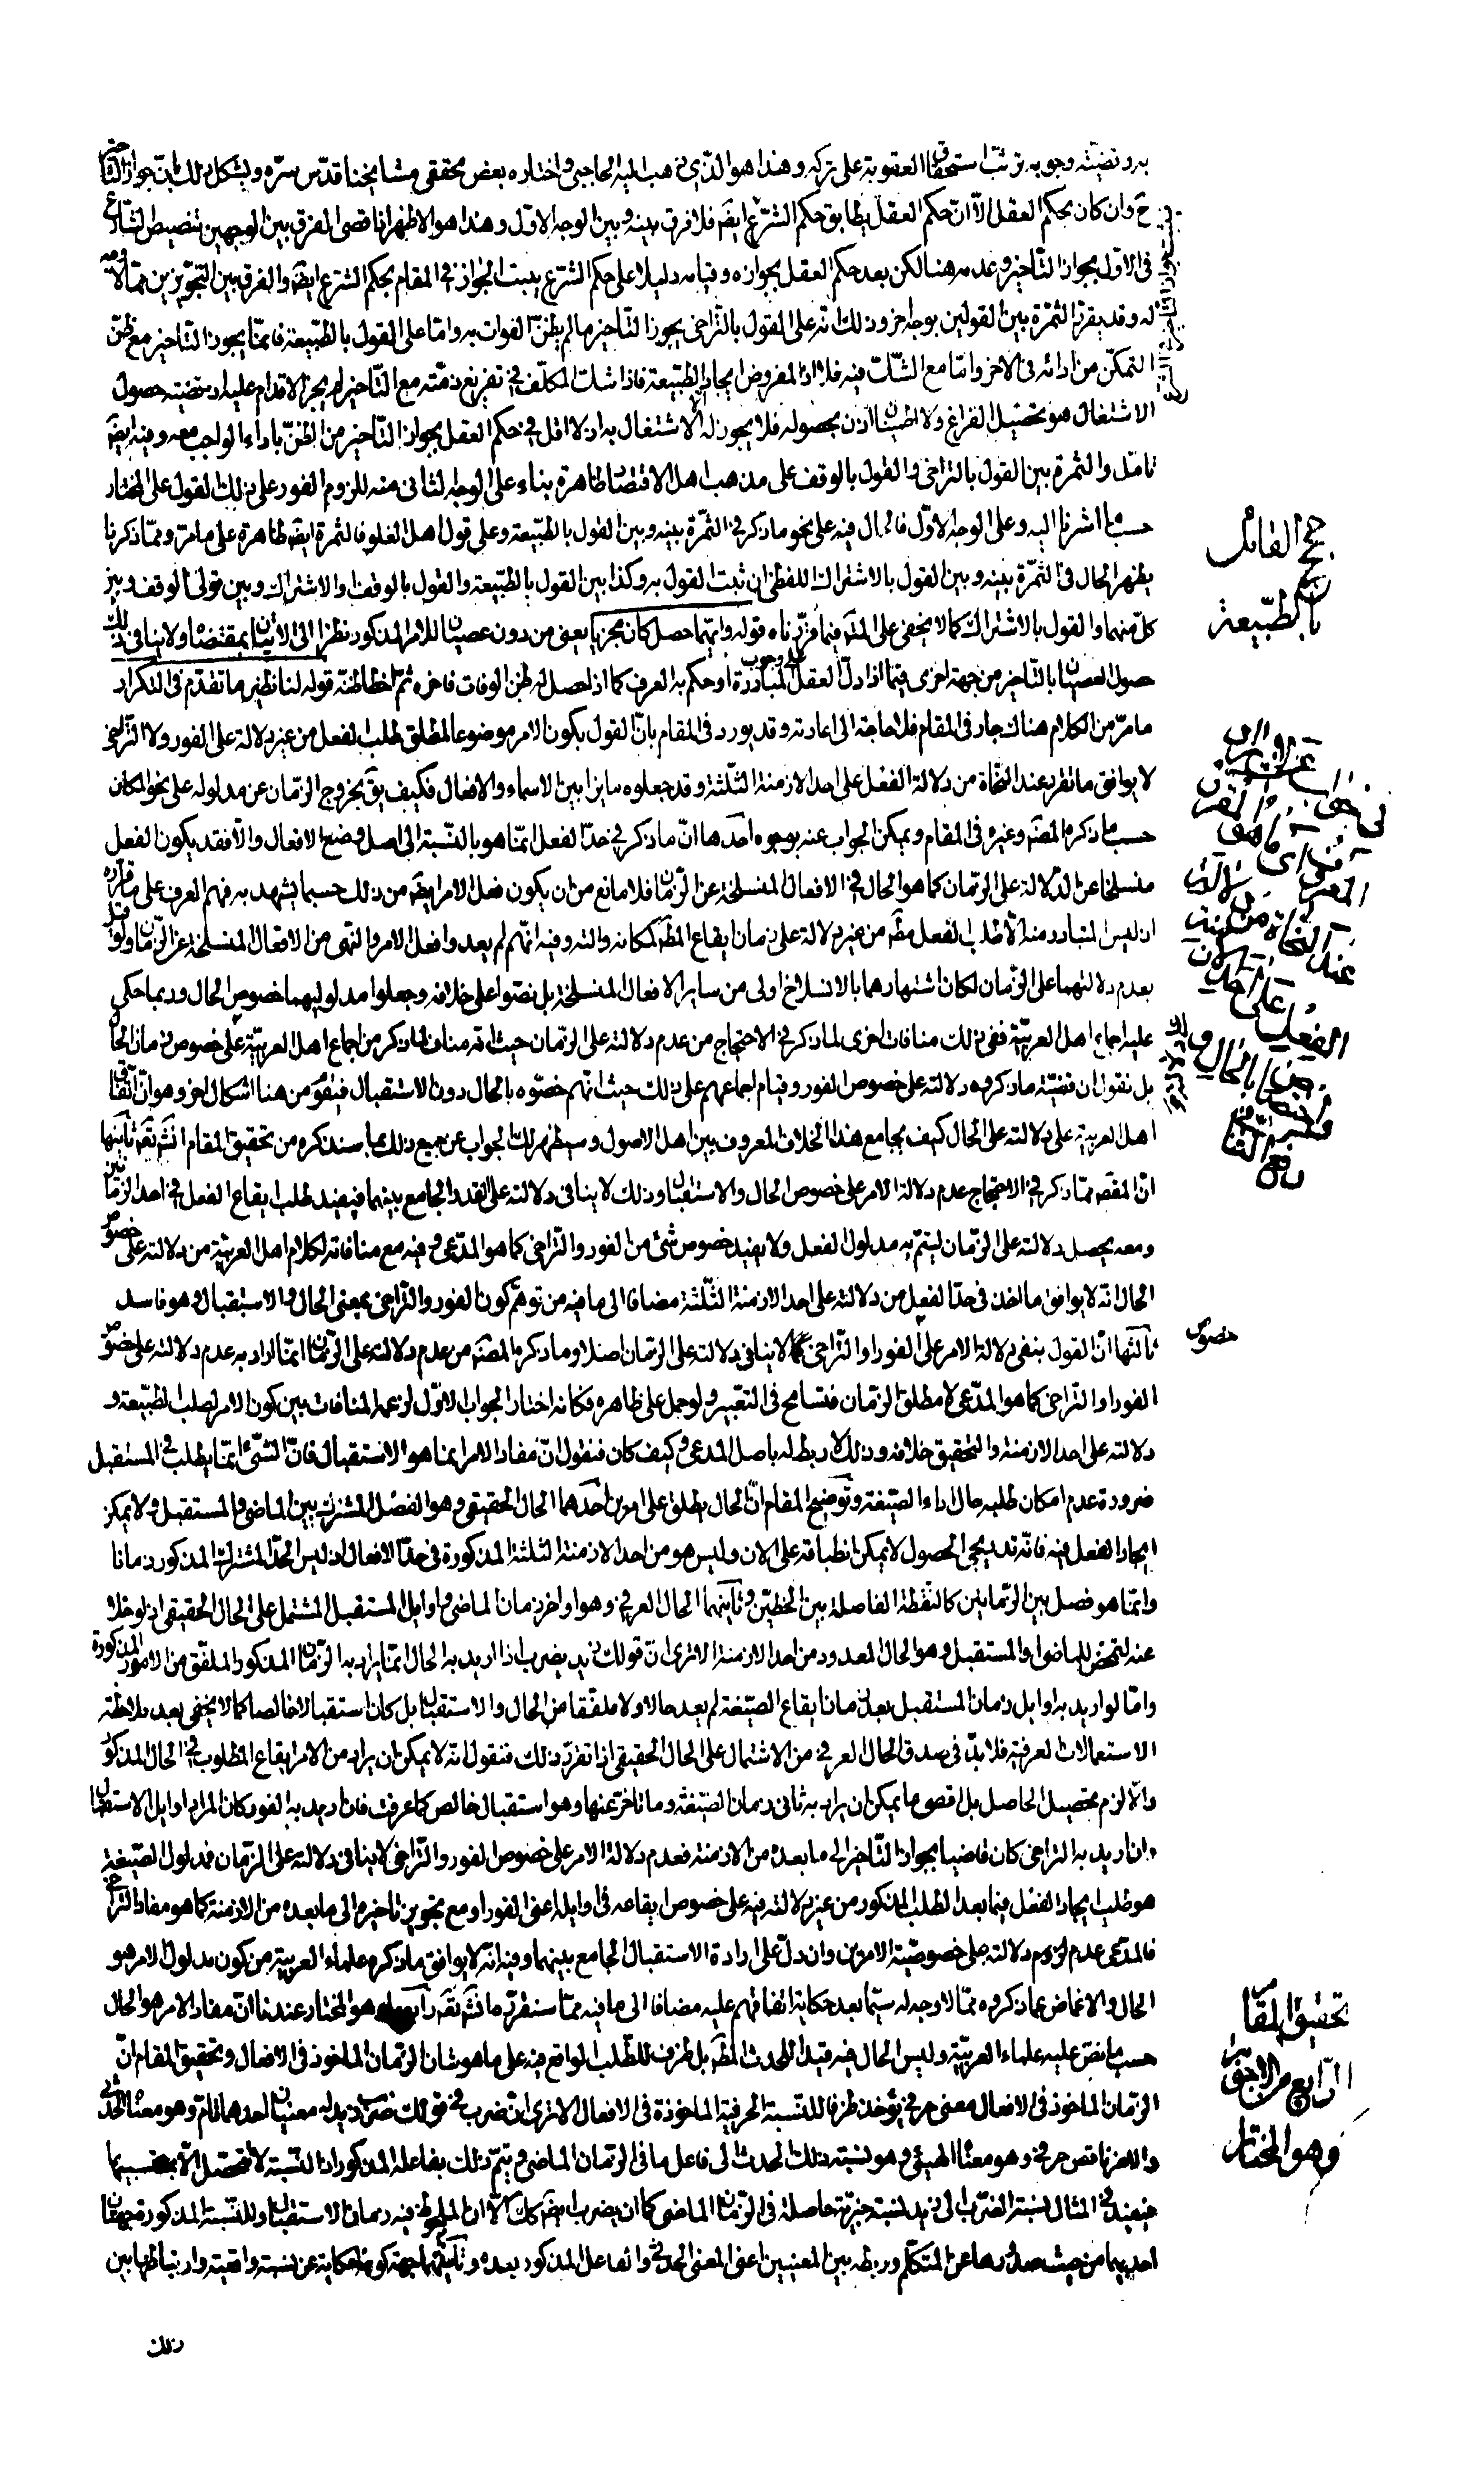 به وقضيّته وجوبه ترتّب استحقاق العقوبة على تركه وهذا هو الذي ذهب اليه الحاجبى واختاره بعض محققى مشايخنا قدّس سرّه ويشكل ذلك بانّ جواز التاخير
ح وان كان بحكم العقل الّا انّ حكم العقل يطابق حكم الشرع ايضا فلا فرق بينه وبين الوجه الاوّل وهذا هو الاظهر اذ اقصى الفرق بين الوجهين تنصيص الشارع
فى الاوّل بجواز التاخير وعدمه هنا لكن بعد حكم العقل بجوازه وقيامه دليلا على حكم الشرع يثبت الجواز فى المقام بحكم الشرع ايضا والفرق بين التجويزين ممّا لا وجه
له وقد يقرّر الثمرة بين القولين بوجه اخر وذلك انّه على القول بالتراخى يجوز التاخير ما لم يظنّ الفوات به وامّا على القول بالطبيعة فانّما يجوز التاخير مع ظنّ
التمكّن من ادائه فى الاخر وامّا مع الشكّ فيه فلا اذ المفروض ايجاد الطبيعة فاذا شكّ المكلّف فى تفريغ ذمّته مع التاخير لم يجز الاقدام عليه اذ قضيّته حصول
الاشتغال هو تحصيل الفراغ ولا اطمينان اذن بحصوله فلا يجوز له الاشتغال به اذ لا اقلّ فى حكم العقل بجواز التاخير من الظنّ باداء الواجب معه وفيه ايضا
تامّل والثمرة بين القول بالتراخى والقول بالوقف على مذهب اهل الاقتصاد ظاهرة بناء على الوجه الثانى منه للزوم الفور على ذلك القول على المختار
حسب ما اشرنا اليه وعلى الوجه الاوّل فالحال فيه على نحو ما ذكر فى الثمرة بينه وبين القول بالطبيعة وعلى قول اهل الغلو فالثمرة ايضا ظاهرة على ما مرّ وممّا ذكرنا
يظهر الحال فى الثمرة بينه وبين القول بالاشتراك اللفظى ان ثبت القول به وكذا بين القول بالطبيعة والقول بالوقف والاشتراك وبين قولى الوقف وبين
كلّ منهما والقول بالاشتراك كما لا يخفى على المتامل فيما قرّرناه قوله وايّهما حصل كان مجزيا يعنى من دون عصيان للامر المذكور نظرا الى الاتيان بمقتضاه ولا ينافى ذلك
حصول العصيان بالتاخير من جهة اخرى فيما اذا دلّ العقل على وجوب المبادرة او حكم به العرف كما اذا حصل له ظنّ الوفات فاخّره ثمّ اخطا ظنّه قوله لنا نظير ما تقدّم فى التكرار
ما مرّ من الكلام هناك جار فى المقام فلا حاجة الى اعادته وقد يورد فى المقام بانّ القول بكون الامر موضوعا لمطلق طلب الفعل من غير دلالة على الفور ولا التراخى
لا يوافق ما تقرر عند النحاة من دلالة الفعل على احد الازمنة الثلثة وقد جعلوه مايزا بين الاسماء والافعال فكيف يق بخروج الزمان عن مدلوله على نحو المكان
حسب ما ذكره المصنف وغيره فى المقام ويمكن الجواب عنه بوجوه احدها انّ ما ذكر فى حدّ الفعل انّما هو بالنسبة الى اصل وضع الافعال والّا فقد يكون الفعل
منسلخا عن الدلالة على الزمان كما هو الحال فى الافعال المنسلخة عن الزمان فلا مانع من ان يكون فعل الامر ايضا من ذلك حسبما يشهد به فهم العرف على ما قرّره
اذ ليس المتبادر منه الّا طلب الفعل مط من غير دلالة على زمان ايقاع المط كمكانه والته وفيه انّهم لم يعدوا فعل الامر والنهى من الافعال المنسلخة عن الزمان ولو قيل
بعدم دلالتهما على الزمان لكان اشتهارهما بالانسلاخ اولى من ساير الافعال المنسلخة بل نصّوا على خلافه وجعلوا مدلوليهما خصوص الحال وربما حكى
عليه اجماع اهل العربيّة ففى ذلك منافات اخرى لما ذكر فى الاحتجاج من عدم دلالته على الزمان حيث انّه مناف لما ذكر من اجماع اهل العربيّة على خصوص زمان الحال
بل نقول ان قضيّة ما ذكروه دلالته على خصوص الفور وقيام اجماعهم على ذلك حيث انّهم خصّوه بالحال دون الاستقبال فيقوم من هنا اشكال اخر وهو انّ اتفاق
اهل العربية على دلالته على الحال كيف يجامع هذا الخلاف المعروف بين اهل الاصول وسيظهر لك الجواب عن جميع ذلك بما سنذكره من تحقيق المقام انش تع ثانيها
انّ المقص ممّا ذكر فى الاحتجاج عدم دلالة الامر على خصوص الحال والاستقبال وذلك لا ينافى دلالته على القدر الجامع بينهما فيفيد طلب ايقاع الفعل فى احد الزمانين
ومعه يحصل دلالته على الزمان ليتمّ به مدلول الفعل ولا يفيد خصوص شئ من الفور والتراخى كما هو المدّعى وفيه مع منافاته لكلام اهل العربيّة من دلالته على خصوص
الحال انّه لا يوافق ما اخذ فى حدّ الفعل من دلالته على احد الازمنة الثلثة مضافا الى ما فيه من توهّم كون الفور والتراخى بمعنى الحال والاستقبال وهو فاسد
ثالثها انّ القول بنفى دلالة الامر على الفور او التراخى كما لا ينافى دلالته على الزمان اصلا وما ذكره المصنف من عدم دلالته على الزمان انّما اراد به عدم دلالته على خصوص
الفور او التراخى كما هو المدّعى لا مطلق الزمان فتسامح فى التعبير ولو حمل على ظاهره فكانه اختار الجواب الاوّل لزعمه المنافات بين كون الامر لطلب الطبيعة و
دلالته على احد الازمنة والتحقيق خلافه وذلك لا ربط له باصل المدعى وكيف كان فنقول انّ مفاد الامر انما هو الاستقبال فانّ الشئ انّما يطلب فى المستقبل
ضرورة عدم امكان طلبه حال اداء الصيغة وتوضيح المقام انّ الحال يطلق على امرين احدهما الحال الحقيقى وهو الفصل المشترك بين الماضى والمستقبل ولا يمكن
ايجاد الفعل فيه فانّه تدريجى الحصول لا يمكن انطباقه على الان وليس هو من احد الازمنة الثلثة المذكورة فى حدّ الافعال اذ ليس الحدّ المشترك المذكور زمانا
وانّما هو فصل بين الزمانين كالنقطة الفاصلة بين الخطين وثانيهما الحال العرفى وهو اواخر زمان الماضى واوايل المستقبل المشتمل على الحال الحقيقى اذ لو خلا
عنه لتمحّض للماضى او المستقبل وهو الحال المعدود من احد الازمنة الا ترى انّ قولك زيد يضرب اذا اريد به الحال انّما يراد به الزمان المذكور الملفّق من الامور المذكورة
وامّا لو اريد به اوايل زمان المستقبل بعد زمان ايقاع الصيغة لم يعد حالا ولا ملفّقا من الحال والاستقبال بل كان استقبالا خالصا كما لا يخفى بعد ملاحظة
الاستعمالات العرفية فلا بدّ فى صدق الحال العرفى من الاشتمال على الحال الحقيقى اذا تقرّر ذلك فنقول انّه لا يمكن ان يراد من الامر ايقاع المطلوب فى الحال المذكور
والّا لزم تحصيل الحاصل بل اقصى ما يمكن ان يراد به ثانى زمان الصيغة وما تاخّر عنها وهو استقبال خالص كما عرفت فان اريد به الفور كان المراد اوايل الاستقبال
وان اريد به التراخى كان قاضيا بجواز التاخير الى ما بعده من الازمنة فعدم دلالة الامر على خصوص الفور والتراخى لا ينافى دلالته على الزمان فمدلول الصيغة
هو طلب ايجاد الفعل فيما بعد الطلب المذكور من غير دلالته فيه على خصوص ايقاعه فى اوايله اعنى الفور او مع تجويز تاخيره الى ما بعده من الازمنة كما هو مفاد التراخى
فالمدّعى عدم لزوم دلالته على خصوصيّة الامرين وان دلّ على ارادة الاستقبال الجامع بينهما وفيه انّه لا يوافق ما ذكره علماء العربية من كون مدلول الامر هو
الحال والاغماض عما ذكروه ممّا لا وجه له سيّما بعد حكاية اتفاقهم عليه مضافا الى ما فيه ممّا سنقرّره انش تع رابعها وهو المختار عندنا انّ مفاد الامر هو الحال
حسب ما نصّ عليه علماء العربيّة وليس الحال فيه قيدا للحدث المط بل ظرف للطلب الواقع فيه على ما هو شان الزمان الماخوذ فى الافعال وتحقيق المقام انّ
الزمان الماخوذ فى الافعال معنى حرفى يؤخذ ظرفا للنسبة الحرفية الماخوذة فى الافعال الا ترى انّ ضرب فى قولك ضرب زيد له معنيان احدهما تامّ وهو معناه الحدثى
والاخر ناقص حرفى وهو معناه الهيئى وهو نسبة ذلك الحدث الى فاعل ما فى الزمان الماضى ويتمّ ذلك بفاعله المذكور اذ النسبة لا تحصّل الّا بمنتسبيها
فيفيد فى المثال نسبة الضرب الى زيد نسبة خبريّة حاصلة فى الزمان الماضى كما ان يضرب ايضا كك الّا ان الملحوظ فيه زمان الاستقبال وللنسبة المذكورة جهتان
احديهما من حيث صدورها عن المتكلّم وربطه بين المعنيين اعنى المعنى الحدثى والفاعل المذكور بعده وثانيتهما جهة كونها حكاية عن نسبة واقعية وارتباطها بين
ذلك
حجج القائلين
بالطبيعة
خصوص
تحقيق المقام
الرابع من الاجوبة
وهو المختار